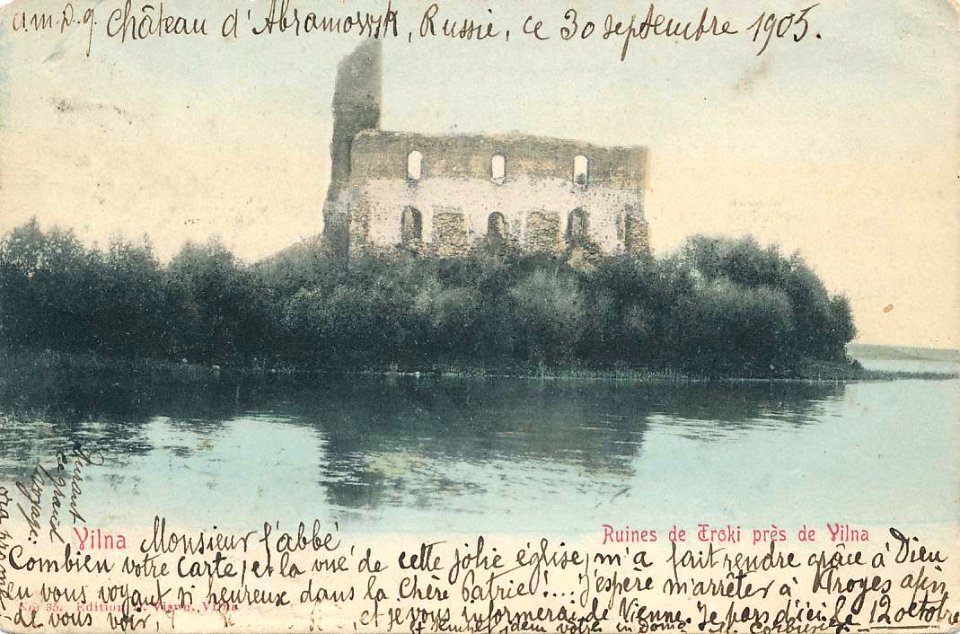 a.m.D.g. Château d'Abramowsk, Russie, ce 30 septembre 1905.
Durant
ce grand
voyage:
Vilna
Ruines de Troki près de Vilna
Monsieur l'abbé
Combien votre Carte, et la vue de cette jolie église, m'a fait rendre grâce à Dieu
en vous voyant si heureux dans la Chère Patrie!... J'espere m'arrêter à Troyes afin
de vous voir, et je vous informerai de Vienne. Je pars d'ici le 12 octobre
No. 35. Edition Vilna